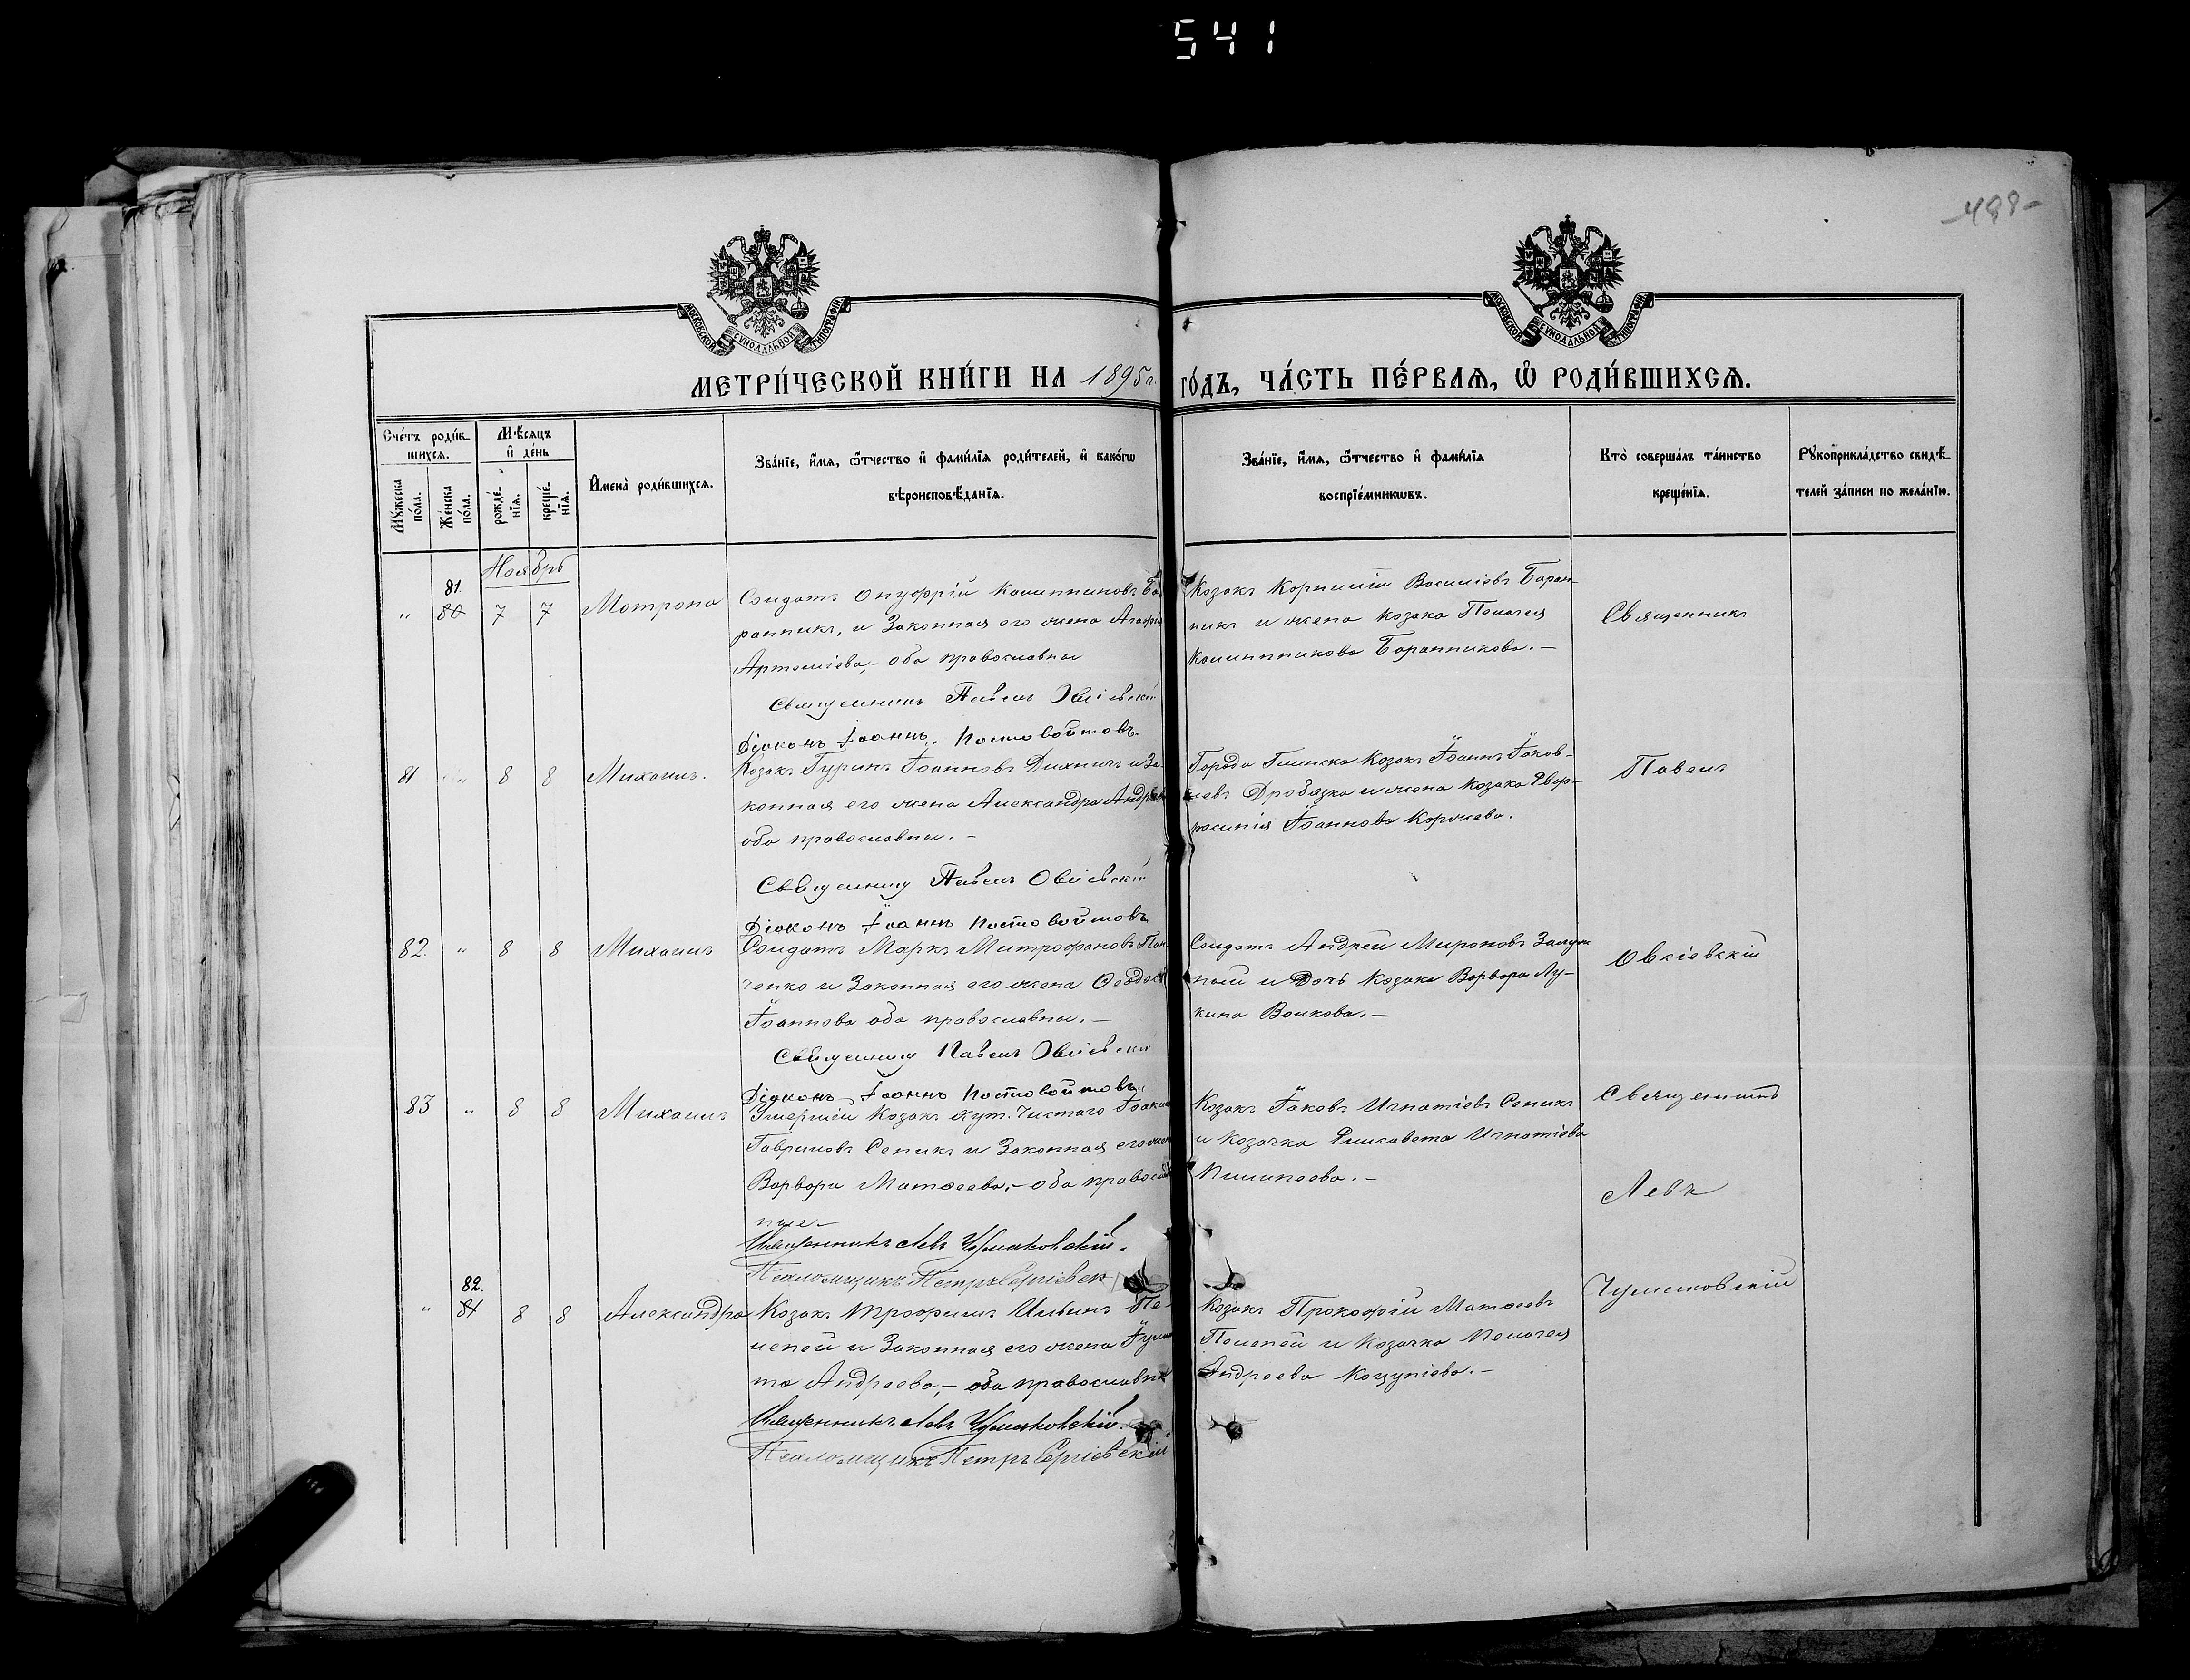 541
488
МОСКОВСКОЙ СѴНОДАЛЬНОЙ ТИПОГРАФІИ
МОСКОВСКОЙ СѴНОДАЛЬНОЙ ТИПОГРАФІИ
МЕТРИ́ЧЕСКОЙ КНИ́ГИ НА 1895 г. ГО́ДЪ, ЧА́СТЬ ПЕ́РВАѦ, Ѡ҆ РОДИ́ВШИХСѦ.
Сче́тъ роди́в-
шихсѧ.
Мꙋ́жеска по́ла.
Же́нска по́ла.
Мѣ́сѧцъ
и҆ де́нь
рожде́-
нїѧ.
креще́-
нїѧ.
И҆мена̀ роди́вшихсѧ.
Зва́нїе, и҆́мѧ, ѻ҆́тчество и҆ фами́лїѧ роди́телей, и҆ како́гѡ
вѣроисповѣ́данїѧ.
Зва́нїе, и҆́мѧ, ѻ҆́тчество и҆ фами́лїѧ
воспрїе́мникѡвъ.
Кто̀ соверша́лъ та́инство
креще́нїѧ.
Рꙋкоприкла́дство свидѣ́-
телей за́писи по жела́нїю.
Ноябрь
81
" 80 7 7 Мотрона Солдатъ Онуфрій Калинниковъ Ба-
ранникъ, и Законная его жена Агафія
Артеміева,- оба православны
Священникъ Павелъ Овсіевскій
Діаконъ Іоаннъ Постовойтовъ.
Козакъ Корнилій Василіевъ Баран-
никъ и жена Козака Пелагея
Калинникова Баранникова.-
Священникъ
81 " 8 8 Михаилъ. Козакъ Гуринъ Іоанновъ Дихничъ и За-
конная его жена Александра Андреева
оба православны.-
Священникъ Павелъ Овсіевскій
Діаконъ Іоаннъ Постовойтовъ
Города Глинска Козакъ Іоаннъ Іаков-
левъ Дробязка и жена Козака Евфр-
росинія Іоаннова Коржева.
Павелъ
82. " 8 8 Михаилъ Солдатъ Маркъ Митрофановъ Пан-
ченко и Законная его жена Евдокія
Іоаннова оба православны.-
Священникъ Павелъ Овсіевскій
Діаконъ Іоаннъ Постовойтовъ
Солдатъ Андрей Мироновъ
ный и Дочь Козака Варвара Лу-
кина Волкова.-
Овсіевскій
83 " 8 8 Михаилъ Умершій Козакъ хут. Чистаго Іоакимъ
Гавриловъ Сеникъ и Законная его жена
Варвара Матѳеева,- оба православ-
ные-
Священникъ Левъ Чумиковскій.
Псаломщикъ Петръ Сергіевск
Козакъ Іаковъ Игнатіевъ Сеникъ
и Козачка Елисавета Игнатіева
Пилипеева.-
Священникъ
Левъ
82.
" 81 8 8 Александра Козакъ Трофимъ Ильинъ Пе-
лепей и Законная его жена Іулит-
та Андреева,- оба православны
Священникъ Левъ Чумиковскій.
Псаломщикъ Петръ Сергіевскій
Козакъ Прокофій Матѳеевъ
Пелепей и Козачка Пелагея
Андреева Коцупіева.-
Чумиковскій